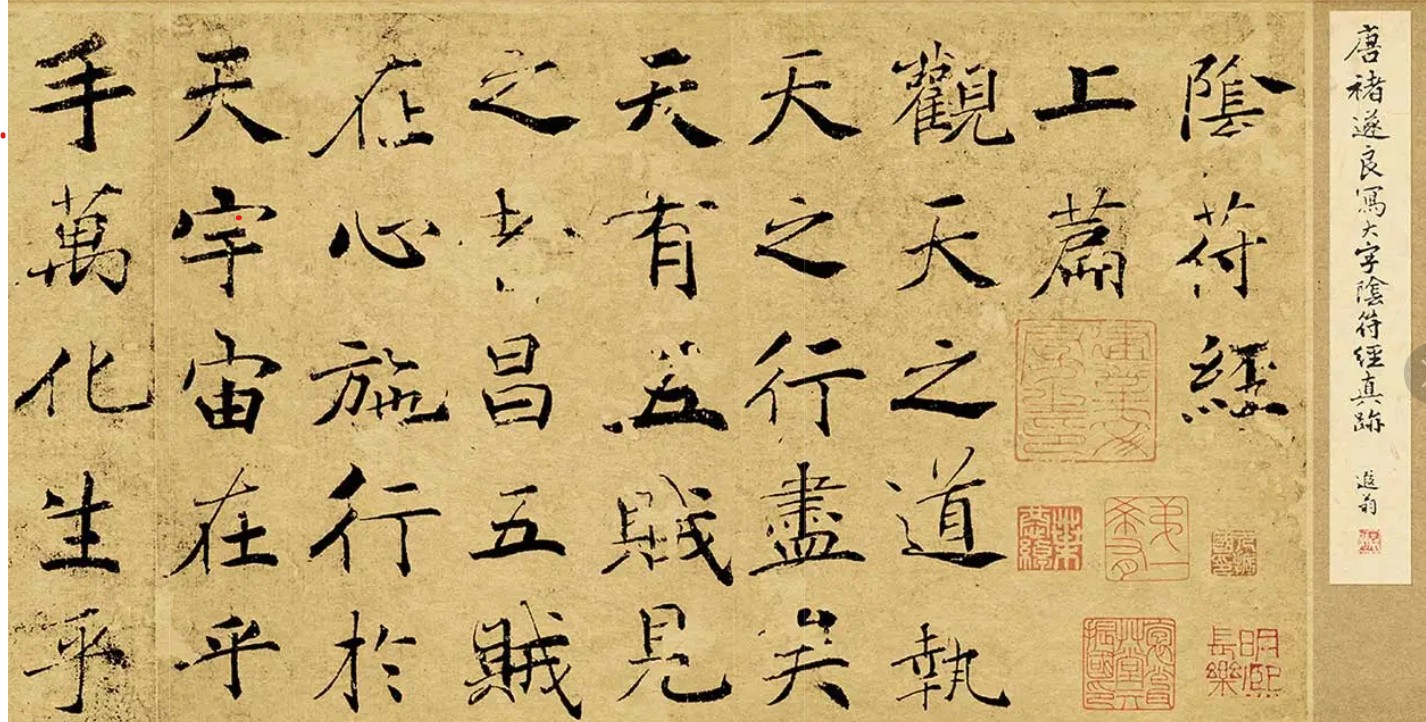 唐褚遂良寫大字陰符經真跡
遐翁
陰符經
上篇
觀天之道執
天之行盡矣
天有五賊見
之者昌五賊
在心施行於
天宇宙在乎
手萬化生乎